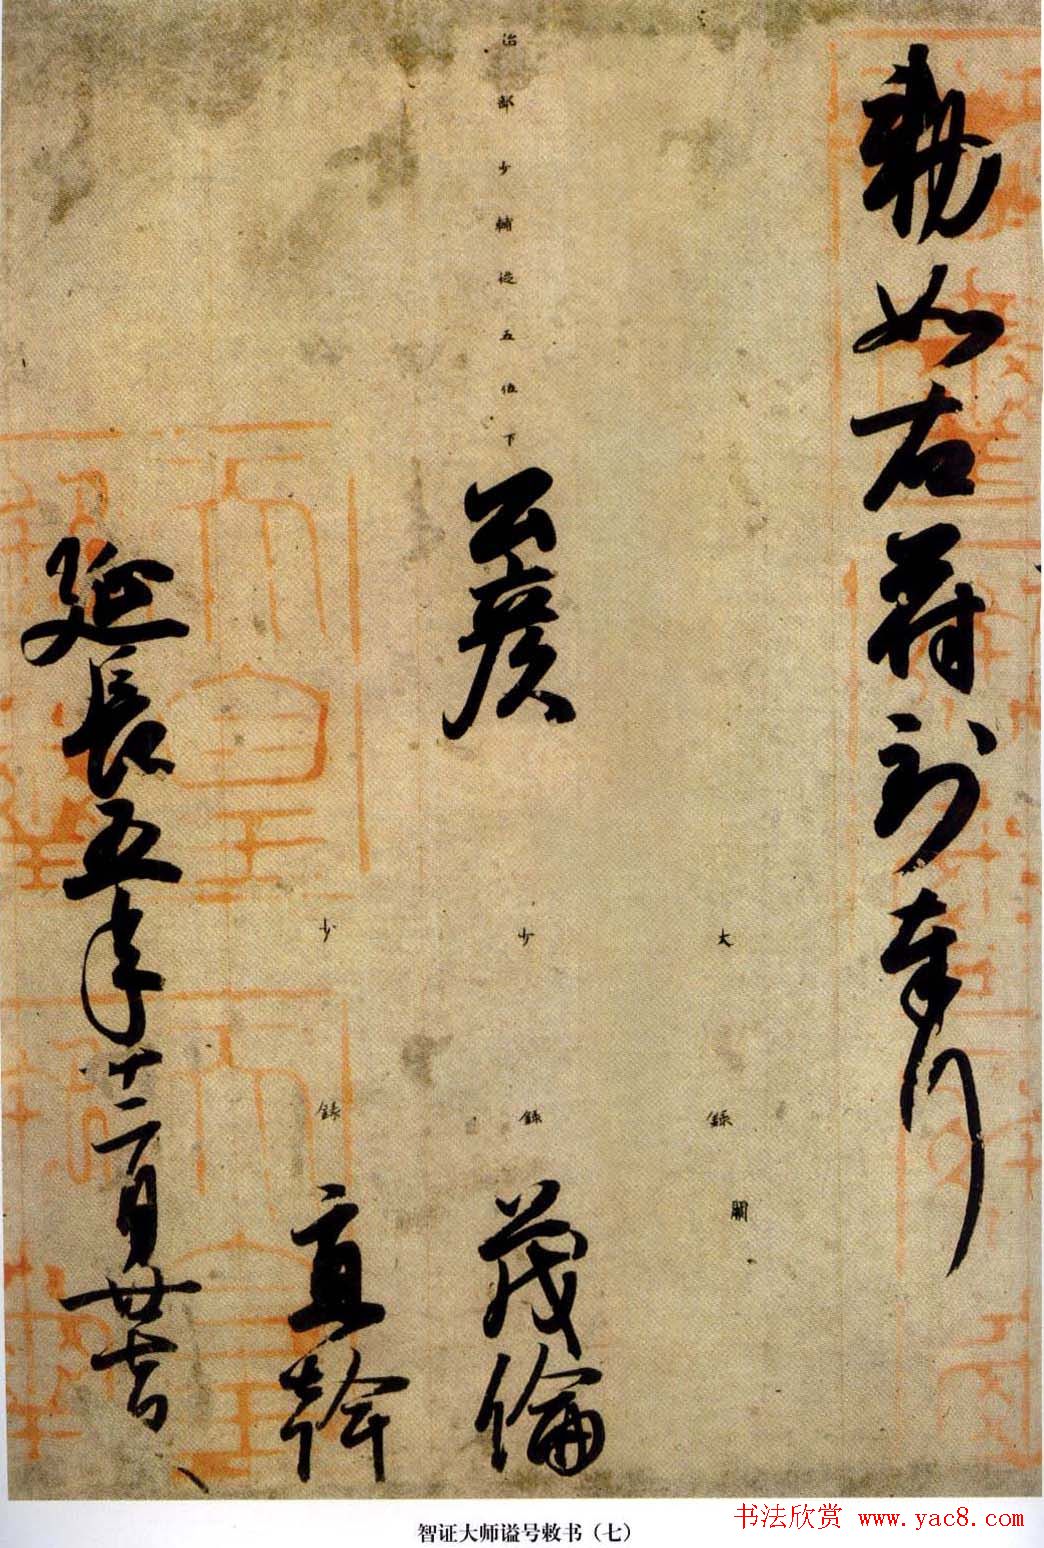 勅如右符到奉行
大録闕
治部少輔従五位下公彦少録茂倫
少録直幹
延長五年十二月廿七日
智证大师谥号敕书（七）
书法欣赏 www.yac8.com